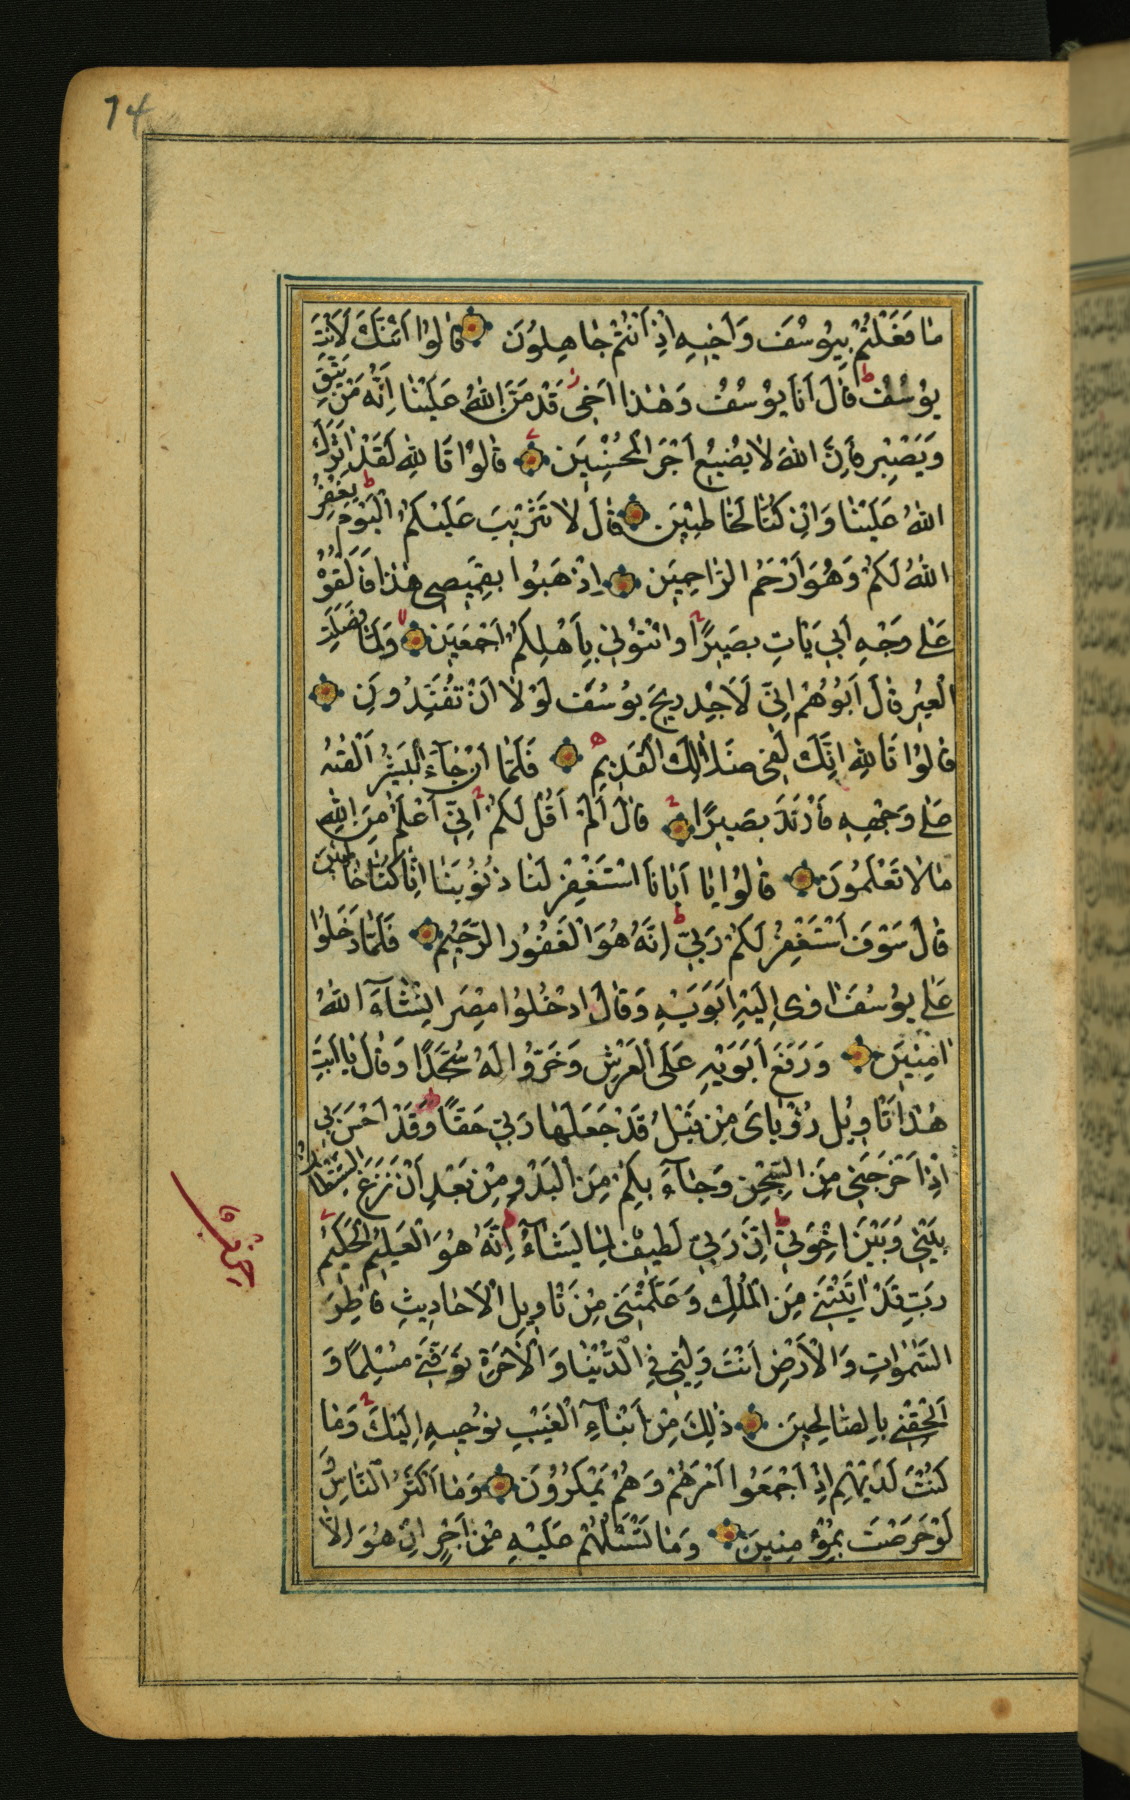 74
مٰا فَعَلْتُمْ بِيُوسُفَ وَاَخيهِ اِذْ اَنْتُمْ جٰاهِلُونَ قٰالُوا اَئِنَّكَ لَاَنْتَ
يُوسُفُ قٰالَ اَنَا يُوسُفُ وَهٰذٰا اَخى قَدْ مَنَّ اللّٰهُ عَلَيْنٰا اِنَّهُ مَنْ يَتَّقِ
وَيَصْبِرْ فَاِنَّ اللّٰهَ لٰا يُضيعُ اَجْرَ الْمُحْسِنينَ قٰالُوا تَاللّٰهِ لَقَدْ اٰثَرَكَ
اللّٰهُ عَلَيْنٰا وَاِنْ كُنّٰا لَخٰاطِئينَ قٰالَ لٰا تَثْريبَ عَلَيْكُمُ الْيَوْمَ يَغْفِرُ
اللّٰهُ لَكُمْ وَهُوَ اَرْحَمُ الرّٰاحِمينَ اِذْهَبُوا بِقَميصى هٰذٰا فَاَلْقُوهُ
عَلٰى وَجْهِ اَبى يَاْتِ بَصيرًا وَاْتُونى بِاَهْلِكُمْ اَجْمَعينَ وَلَمّٰا فَصَلَتِ
الْعيرُ قٰالَ اَبُوهُمْ اِنّى لَاَجِدُ ريحَ يُوسُفَ لَوْلٰا اَنْ تُفَنِّدُونِ
قٰالُوا تَاللّٰهِ اِنَّكَ لَفى ضَلٰالِكَ الْقَديمِ فَلَمّٰا اَنْ جٰاءَ الْبَشيرُ اَلْقٰيهُ
عَلٰى وَجْهِهِ فَارْتَدَّ بَصيرًا قٰالَ اَلَمْ اَقُلْ لَكُمْ اِنّى اَعْلَمُ مِنَ اللّٰهِ
مٰا لٰا تَعْلَمُونَ قٰالُوا يٰا اَبٰانَا اسْتَغْفِرْ لَنٰا ذُنُوبَنٰا اِنّٰا كُنّٰا خٰاطِئينَ
قٰالَ سَوْفَ اَسْتَغْفِرُ لَكُمْ رَبّى اِنَّهُ هُوَ الْغَفُورُ الرَّحيمُ فَلَمّٰا دَخَلُوا
عَلٰى يُوسُفَ اٰوٰى اِلَيْهِ اَبَوَيْهِ وَقٰالَ ادْخُلُوا مِصْرَ اِنْ شٰاءَ اللّٰهُ
اٰمِنينَ وَرَفَعَ اَبَوَيْهِ عَلَى الْعَرْشِ وَخَرُّوا لَهُ سُجَّدًا وَقٰالَ يٰا اَبَتِ
هٰذٰا تَاْويلُ رُؤْيٰاىَ مِنْ قَبْلُ قَدْ جَعَلَهٰا رَبّى حَقًّا وَقَدْ اَحْسَنَ بى
اِذْ اَخْرَجَنى مِنَ السِّجْنِ وَجٰاءَ بِكُمْ مِنَ الْبَدْوِ مِنْ بَعْدِ اَنْ نَزَغَ الشَّيْطٰانُ
بَيْنى وَبَيْنَ اِخْوَتى اِنَّ رَبّى لَطيفٌ لِمٰا يَشٰاءُ اِنَّهُ هُوَ الْعَليمُ الْحَكيمُ
رَبِّ قَدْ اٰتَيْتَنى مِنَ الْمُلْكِ وَعَلَّمْتَنى مِنْ تَاْويلِ الْاَحٰاديثِ فٰاطِرَ
السَّمٰوٰاتِ وَالْاَرْضِ اَنْتَ وَلِيّى فِى الدُّنْيٰا وَالْاٰخِرَةِ تَوَفَّنى مُسْلِمًا وَ
اَلْحِقْنى بِالصّٰالِحينَ ذٰلِكَ مِنْ اَنْبٰاءِ الْغَيْبِ نُوحيهِ اِلَيْكَ وَمٰا
كُنْتَ لَدَيْهِمْ اِذْ اَجْمَعُوا اَمْرَهُمْ وَهُمْ يَمْكُرُونَ وَمٰا اَكْثَرُ النّٰاسِ وَ
لَوْ حَرَصْتَ بِمُؤْمِنينَ وَمٰا تَسْئَلُهُمْ عَلَيْهِ مِنْ اَجْرٍ اِنْ هُوَ اِلّٰا